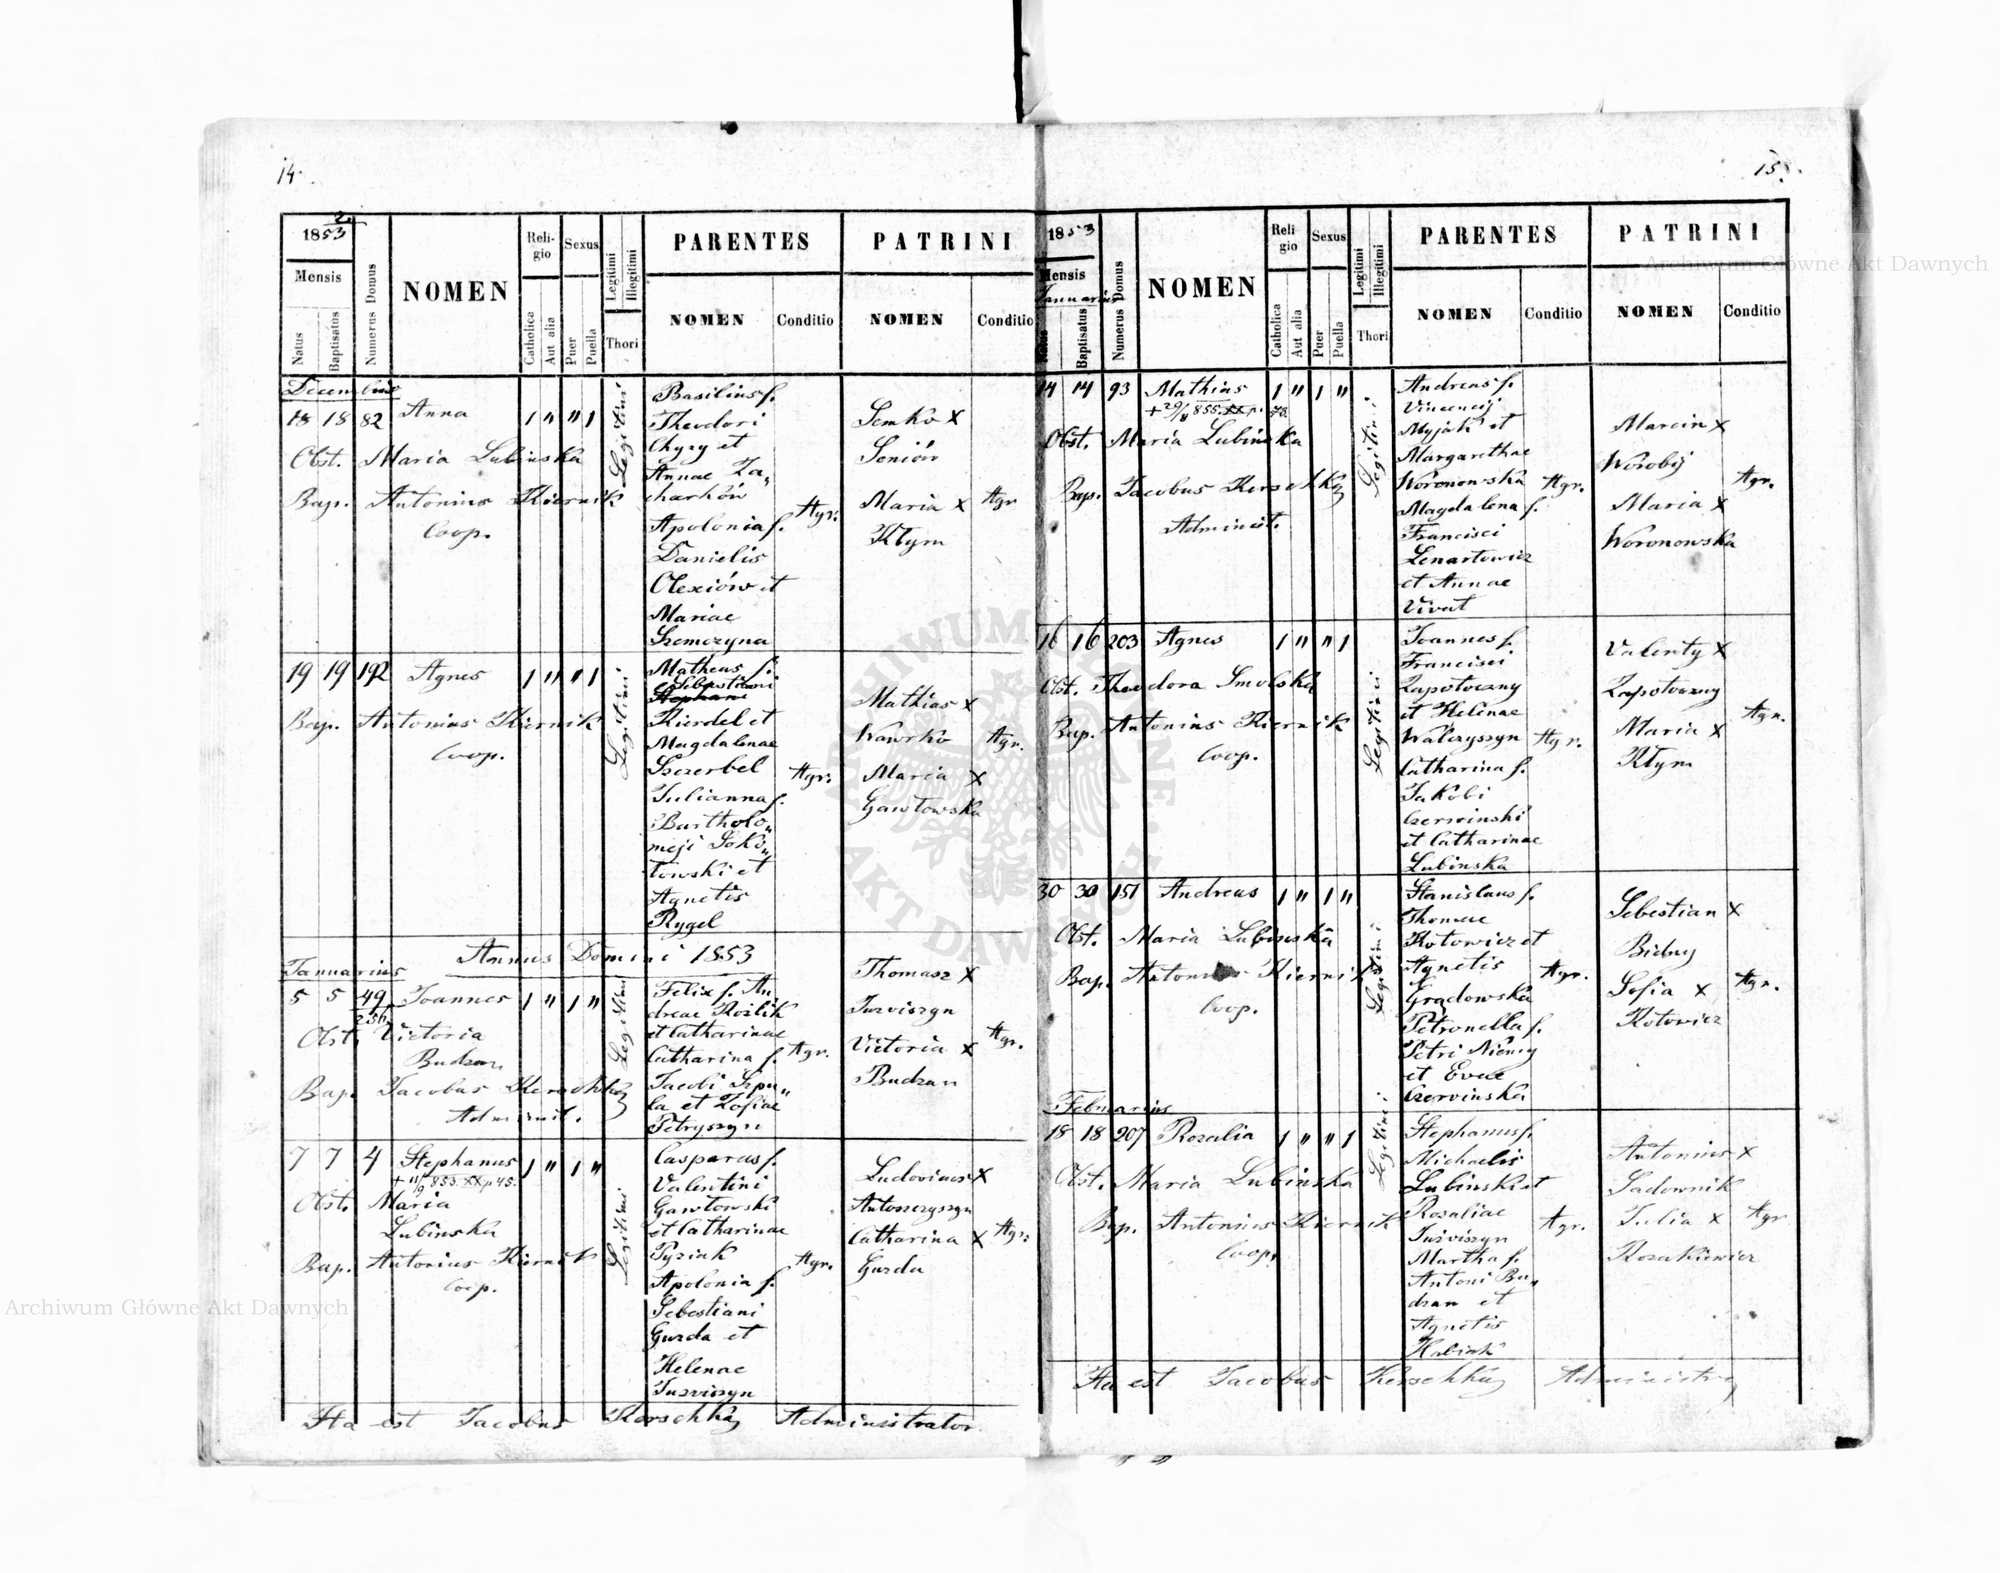 14.
1853
2
Mensis
Natus
Baptisatus
Numerus Domus
NOMEN
Religio
Catholica
Aut alia
Sexus
Puer
Puella
Legitimi
Illegitimi
Thori
PARENTES
NOMEN
Conditio
PATRINI
NOMEN
Conditio
December
18 18 82 Anna 1 " " 1
Obst. Maria Lubinska
Bap. Antonius Kiernik
Coop.
Legitimi
Basilius f.
Theodori
Chyzy et
Annae Za„
charków
Apolonia f.
Danielis
Olexiów et
Mariae
Szemczyna
Agr.
Semko X
Seniów
Maria X
Kłym
Agr
19 19 192 Agnes 1 " " 1
Bap. Antonius Kiernik
Coop.
Legitimi
Matheus f.
Sebastiani
Stephani
Kierdel et
Magdalenae
Szczerbel
Julianna f.
Bartholo„
meji Soko„
towski et
Agnetis
Rygel
Agr.
Mathias X
Wawrko
Maria X
Gawłowska
Agr.
Annus Domini 1853
Januarius
5 5 49 Joannes 1 " 1 "
256
Obst. Victoria
Budzan
Bap. Jacobus Kerschka
Adminit.
Legitimi
Felix f. An„
dreae Kozlik
et Catharinae
Catharina f.
Jacobi Szpu„
la et Zofiae
Petryszyn
Agr.
Thomasz X
Juzviszyn
Victoria X
Budzan
Agr.
7 7 4 Stephanus 1 " 1 "
+ 11/9 853 XX p 45.
Obst. Maria
Lubinska
Bap. Antonius Kiernik
Coop.
Legitimi
Casparus f.
Valentini
Gawłowski
et Catharinae
Pyziak
Apolonia f.
Sebestiani
Guzda et
Helenae
Juzviszyn
Agr.
Ludovicus X
Antoszczyszyn
Catharina X
Guzda
Agr.
Ita est Jacobus Kerschka Administrator.
15.
1853
Mensis
Januarius
Natus
Baptisatus
Numerus Domus
NOMEN
Religio
Catholica
Aut alia
Sexus
Puer
Puella
Legitimi
Illegitimi
Thori
PARENTES
NOMEN
Conditio
PATRINI
NOMEN
Conditio
14 14 93 Mathias 1 " 1 "
+ 29/8 855. XX p. 78.
Obst. Maria Lubinska
Bap. Jacobus Kerschka
Adminit.
Legitimi
Andreas f.
Vincencij
Myjak et
Margarethae
Woronowska
Magdalena f.
Francisci
Lenartowicz
et Annae
Vivat
Agr.
Marcin X
Worobij
Maria X
Woronowska
Agr.
16 16 203 Agnes 1 " " 1
Obst. Theodora Smolska
Bap. Antonius Kiernik
Coop.
Legitimi
Joannes f.
Francisci
Zapotoczny
et Helenae
Walczyszyn
Catharina f.
Jakobi
Czerwinski
et Catharinae
Lubinska
Agr.
Valenty X
Zapotoczny
Maria X
Kłym
Agr.
30 30 151 Andreas 1 " 1 "
Obst. Maria Lubinska
Bap. Antonius Kiernik
Coop.
Legitimi
Stanislaus f.
Thomae
Kotowicz et
Agnetis
Grądowska
Petronella f.
Petri Niemy
et Evae
Czervinska
Agr.
Sebestian X
Bidny
Sofia X
Kotowicz
Agr.
Februarius
18 18 207 Rozalia 1 " " 1
Obst. Maria Lubinska
Bap. Antonius Kiernik
Coop.
Legitimi
Stephanus f.
Michaelis
Lubinski et
Rosaliae
Juzviszyn
Martha f.
Antoni Bu„
dzan et
Agnetis
Kubiak
Agr.
Antonius X
Sadownik
Julia X
Kozakiewicz
Agr
Ita est Jacobus Kerschka Administr
Archiwum Główne Akt Dawnych
Archiwum Główne Akt Dawnych
ARCHIWUM GŁÓWNE AKT DAWNYCH